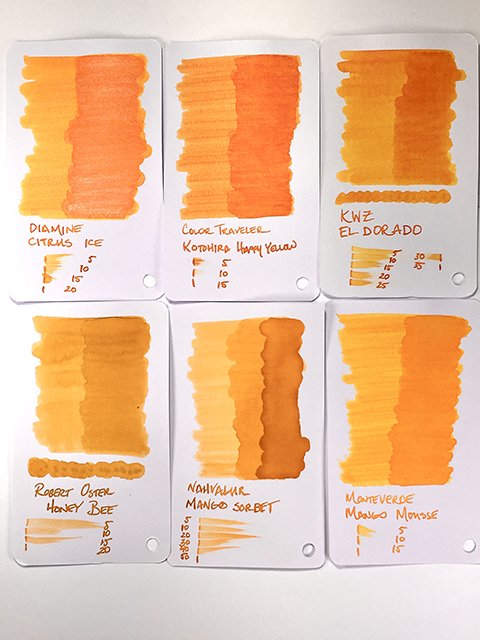 DIAMINE
CITRUS ICE
5
10
15
20
COLOR TRAVELER
KOTOHIRA HAPPY YELLOW
5
10
15
KWZ
EL DORADO
5 30
10 35
15
20
25
ROBERT OSTER
HONEY BEE
5
10
15
20
NAHVALUR
MANGO SORBET
5
10
20
30
40
50
MONTEVERDE
MANGO MOUSSE
5
10
15